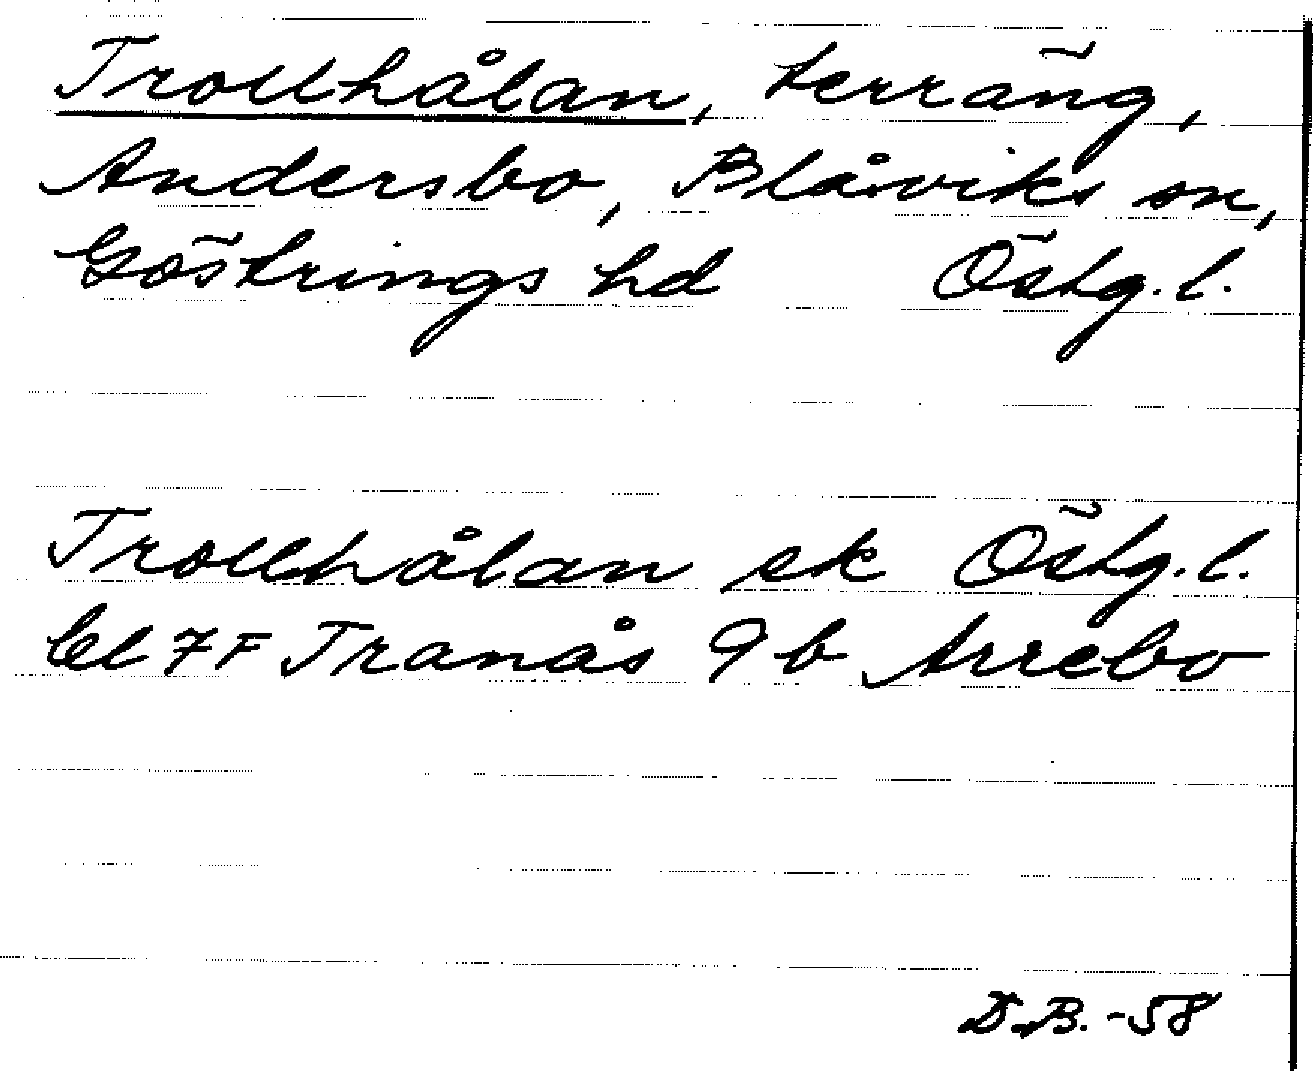 Trollhålan, terräng,
Andersbo, Blåviks sn,
Göstrings hd Östg.l.
Trollhålan ek Östg.l.
bl 7F Tranås 9 b Arrebo
D.B. -58